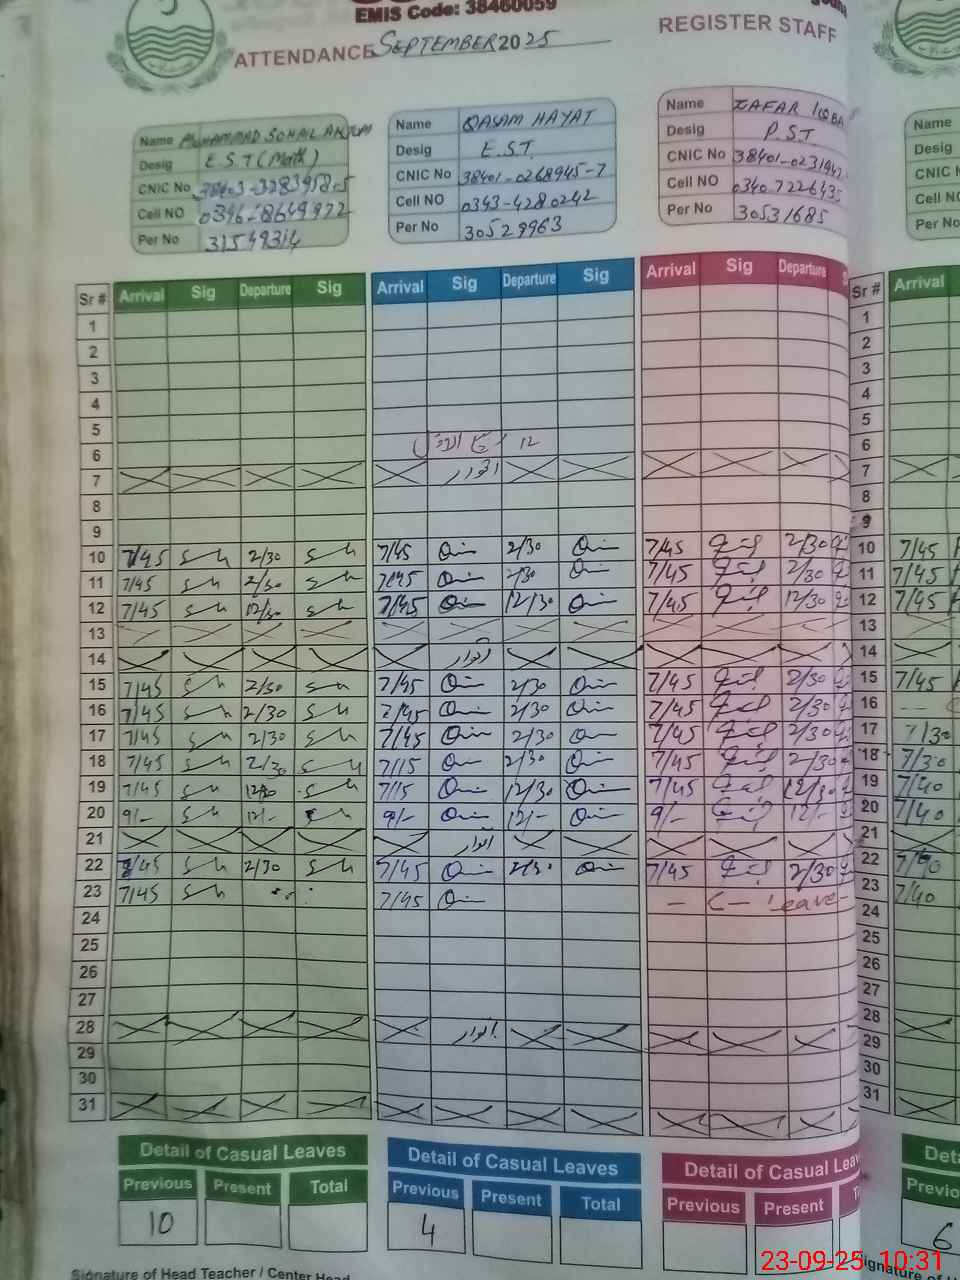 EMIS Code: 38460059
ATTENDANCE SEPTEMBER 2025 REGISTER STAFF
Name MUHAMMAD SOHAIL ANJUM
Desig E.S.T (Math)
CNIC No
Cell NO 0346-8649972
Per No 31549314
Name QASAM HAYAT
Desig E.S.T.
CNIC No 38401-0268945-7
Cell NO 0343-4280242
Per No 30529963
Name ZAFAR IQBA
Desig P.S.T
CNIC No 38401-02319
Cell NO 0340-722643
Per No 30531685
Name
Desig
CNIC
Cell NO
Per No
Sr # Arrival Sig Departure Sig Arrival Sig Departure Sig Arrival Sig Departure S Sr # Arrival
1 1
2 2
3 3
4 4
5 5
6 12 6
7 اتوار 7
8 8
9 9
10 7/45 2/30 7/45 2/30 7/45 2/30 10 7/45
11 7/45 2/30 7/45 2/30 7/45 2/30 11 7/45
12 7/45 12/30 7/45 12/30 7/45 12/30 12 7/45
13 13
14 اتوار 14
15 7/45 2/30 7/45 2/30 7/45 2/30 15 7/45
16 7/45 2/30 7/45 2/30 7/45 2/30 16
17 7/45 2/30 7/45 2/30 7/45 2/30 17 7/30
18 7/45 2/30 7/15 2/30 7/45 2/30 18 7/30
19 7/45 12/30 7/15 12/30 7/45 12/30 19 7/40
20 9/- 12/- 9/- 12/- 9/- 12/- 20 7/40
21 اتوار 21
22 7/45 2/30 7/45 2/30 7/45 2/30 22 7/40
23 7/45 7/45 - C - leave - 23 7/40
24 24
25 25
26 26
27 27
28 اتوار 28
29 29
30 30
31 31
Detail of Casual Leaves
Previous Present Total
10
Detail of Casual Leaves
Previous Present Total
4
Detail of Casual Leav
Previous Present
Det
Previo
6
Signature of Head Teacher / Center Head
Signature of
23-09-25 10:31